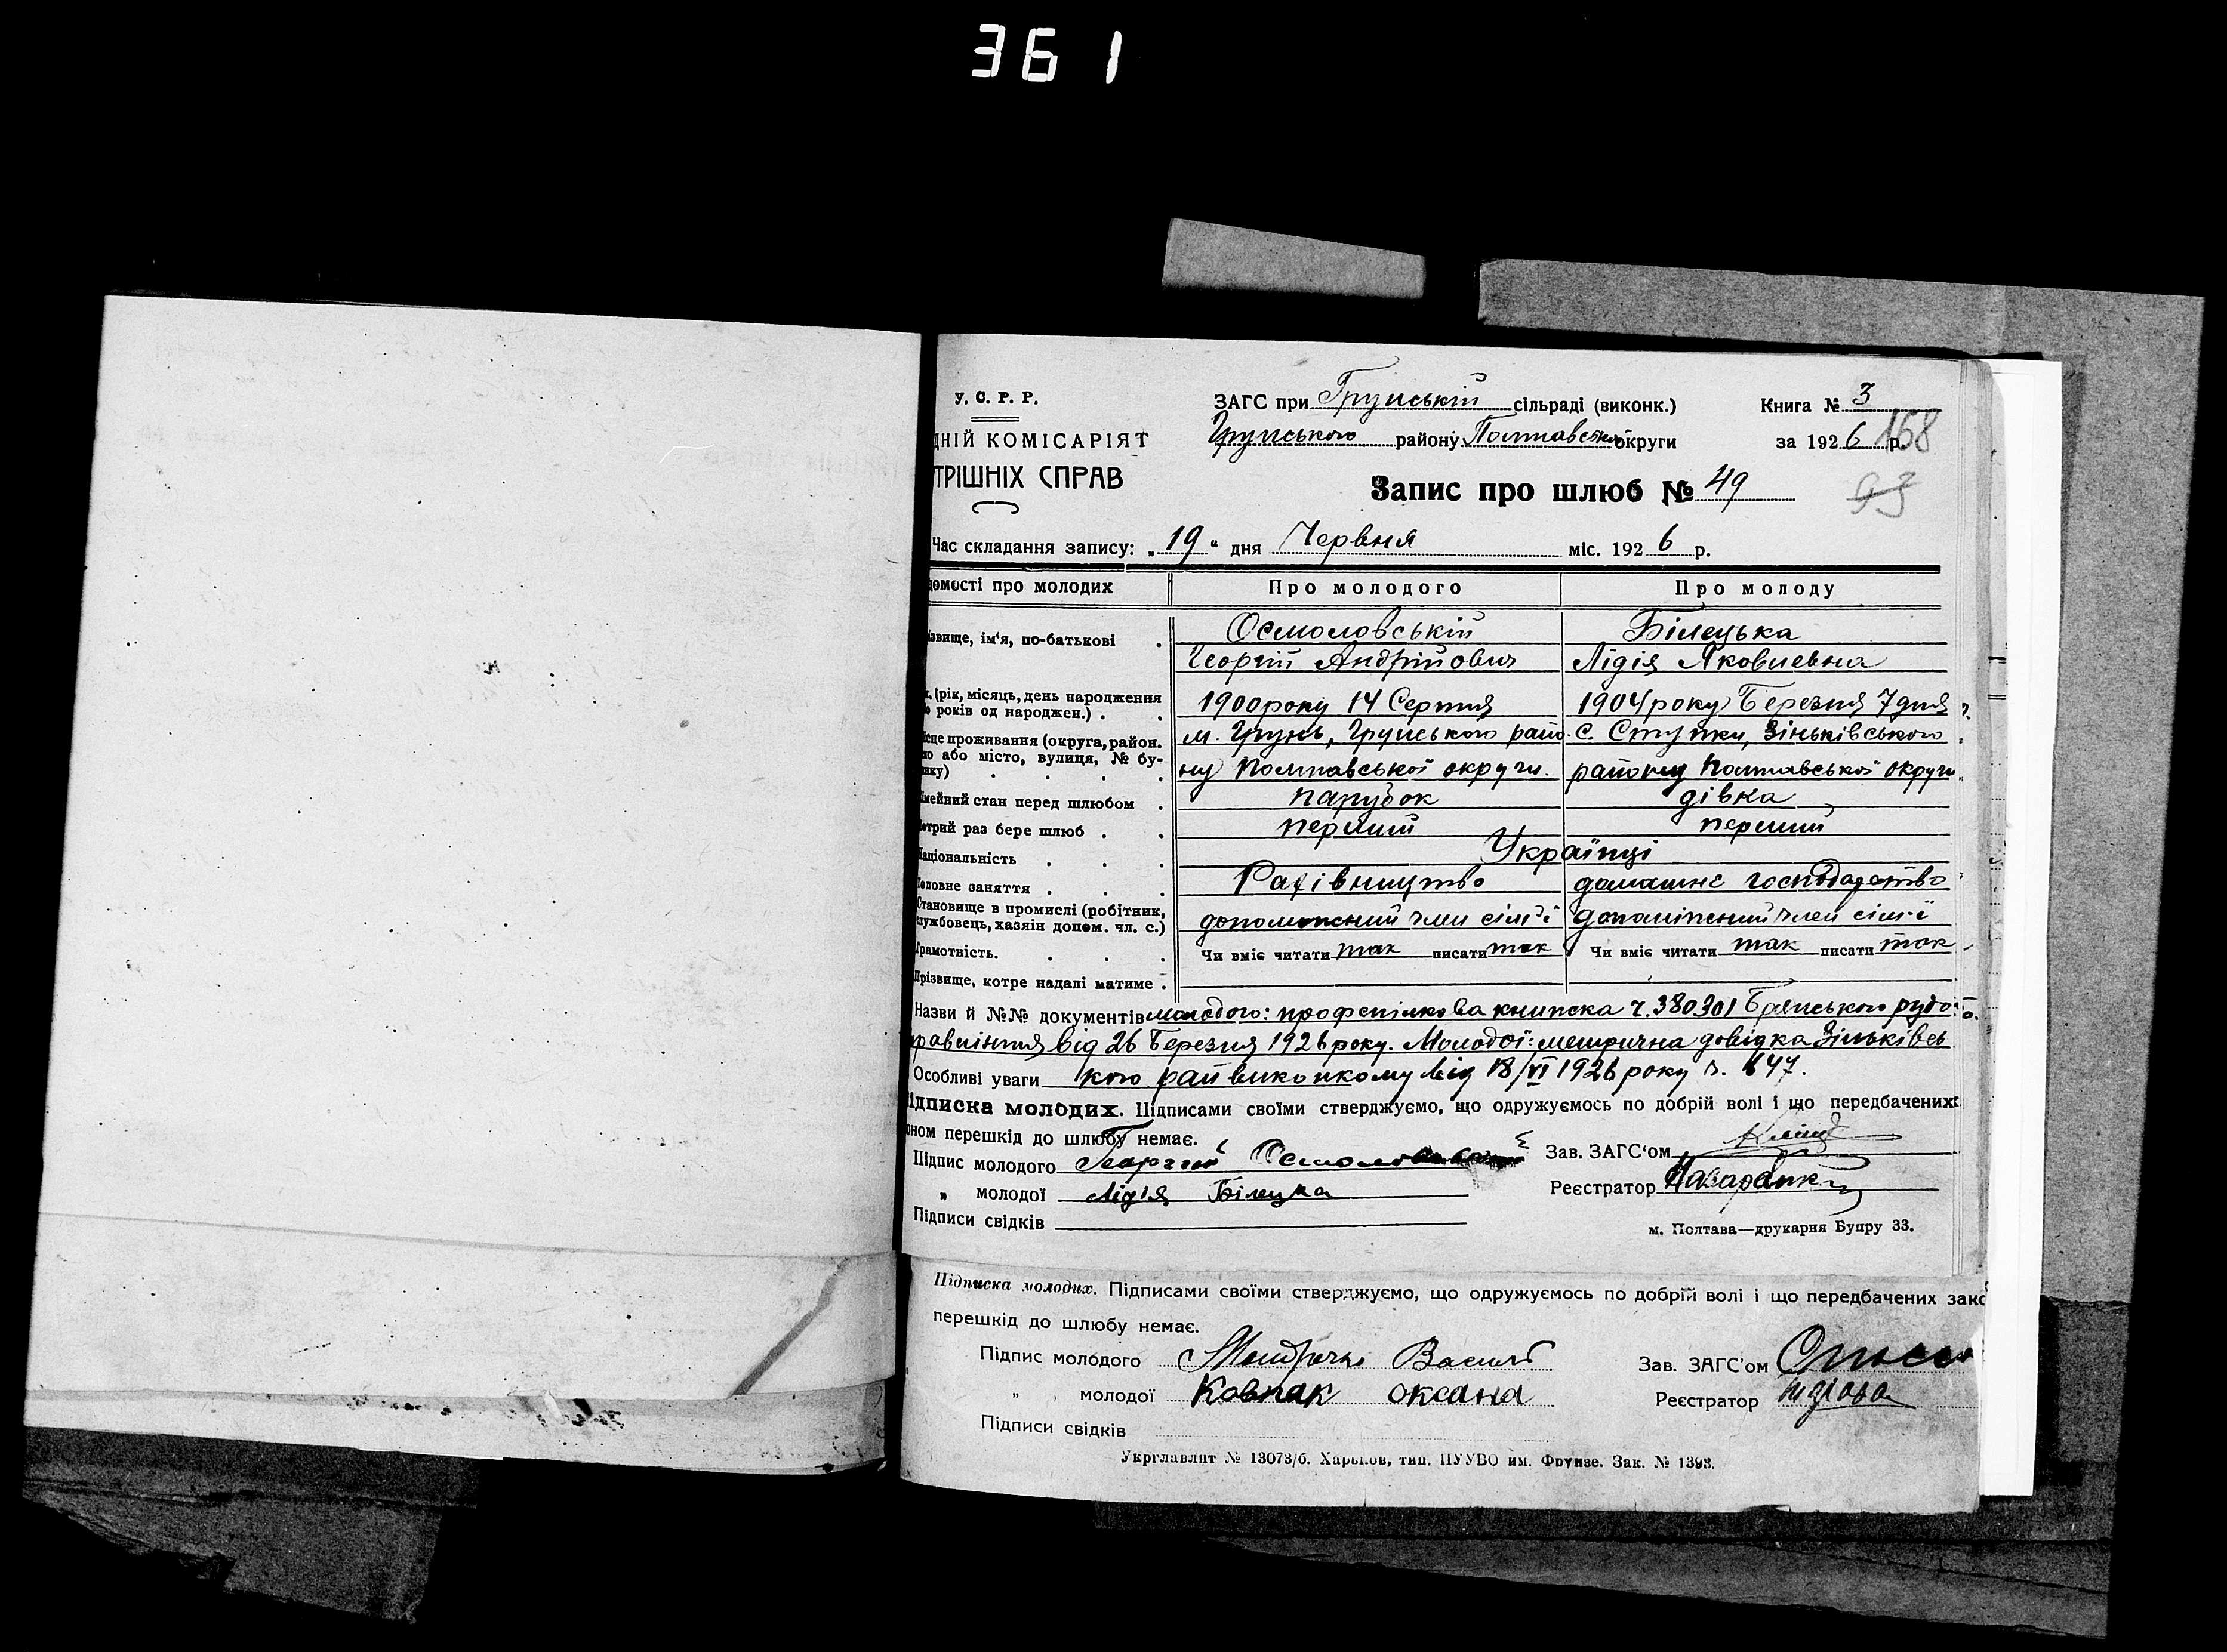 361
У. С. Р. Р.
ДНІЙ КОМІСАРІЯТ
ТРІШНІХ СПРАВ
ЗАГС при Грунській сільраді (виконк.)
Грунського району Полтавської округи
Книга № 3
за 1926 р.
168
93
Запис про шлюб № 49
Час складання запису: „19“ дня Червня міс. 1926 р.
домості про молодих Про молодого Про молоду
ізвище, ім‘я, по-батькові . Осмоловській Білецька
Георгій Андрійович Лідія Яковлевна
(рік, місяць, день народження
років од народжен.) . . 1900 року 14 Серпня 1904 року Березня 7 дня
сце проживання (округа, район. м. Грунь, Грунського райо- с. Ступки, Зіньківського
або місто, вулиця, № бу-
инку) . . . . ну Полтавської округи. району Полтавської округи
імейний стан перед шлюбом . парубок дівка
отрий раз бере шлюб . . перший перший
Національність . . . Українці
Головне заняття . . . домашнє господарство
Становище в промислі (робітник,
службовець, хазяін допом. чл. с.) допоміжний член сім'ї допоміжний член сім'ї
Грамотність. . . . Чи вміє читати так писати так Чи вміє читати так писати так
Прізвище, котре надалі матиме .
Назви й №№ документів молодого: профспілкова книжка ч. 380301
равління від 26 Березня 1926 року. Молодої: метрична довідка Зіньківсь
Особливі уваги кого райвиконкому від 18/VI 1926 року ч. 647.
ідписка молодих. Підписами своїми стверджуємо, що одружуємось по добрій волі і що передбачених
оном перешкід до шлюбу немає.
Підпис молодого Георгій Осмоловський Зав. ЗАГС‘ом
„ молодої Лідія Білецка Реєстратор
Підписи свідків
м. Полтава—друкарня Бупру 33.
Підписка молодих. Підписами своїми стверджуємо, що одружуємось по добрій волі і що передбачених зако
перешкід до шлюбу немає.
Підпис молодого Василь Зав. ЗАГС'ом
„ молодої Ковпак оксана Реєстратор
Підписи свідків
Укрглавлит № 13073/б. Харьков, тип. ПУУВО им. Фрунзе. Зак. № 1393.